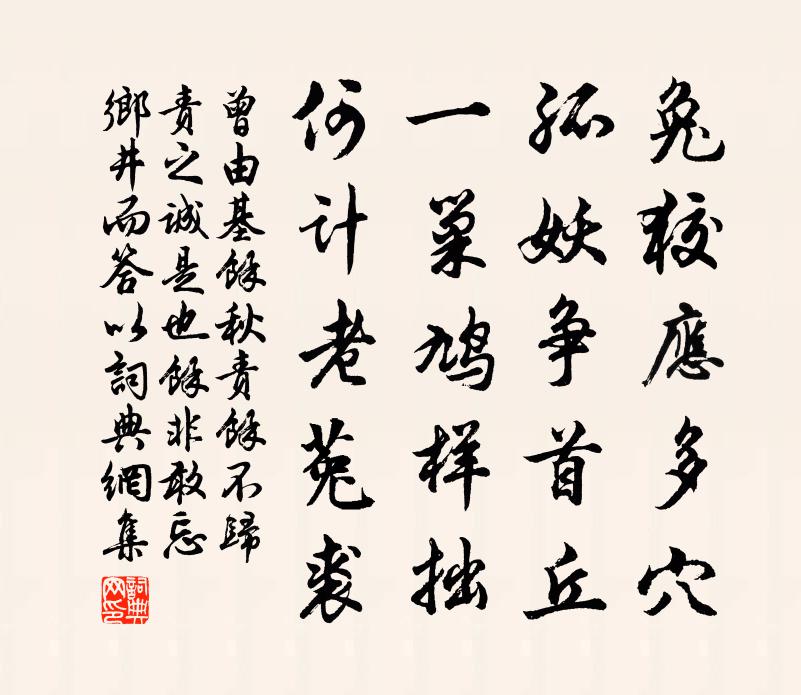 兔狡應多穴
孤妖争首丘
一巢鸠样拙
何计老菟裘
曾由基餘秋責餘不歸
責之誠是也餘非敢忘
鄉井而答以詞典網集
詞典網印